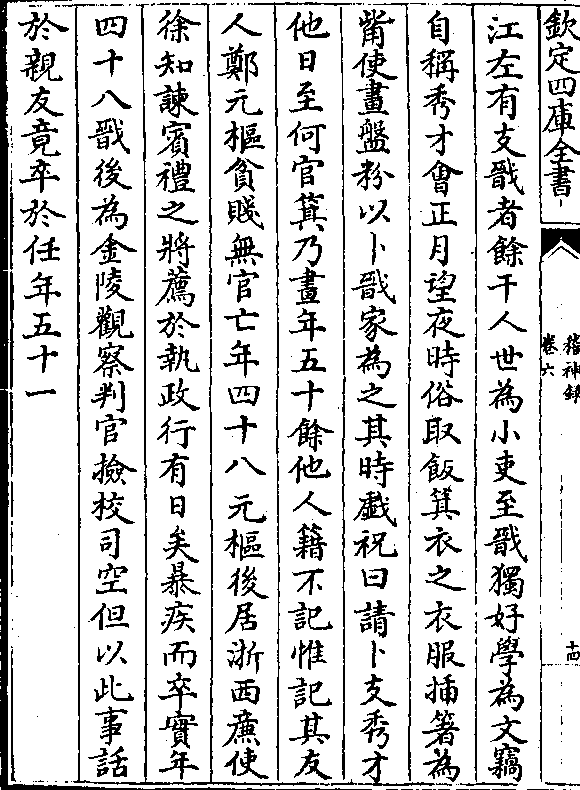 欽定四庫全書
稽神録
卷六
十四
江左有支戩者餘干人世為小吏至戩獨好學為文竊
自稱秀才會正月望夜時俗取飯箕衣之衣服插箸為
觜使畫盤粉以卜戩家為之其時戲祝曰請卜支秀才
他日至何官箕乃畫年五十餘他人籍不記惟記其友
人鄭元樞貧賤無官亡年四十八元樞後居浙西亷使
徐知諫賓禮之將薦於執政行有日矣暴疾而卒實年
四十八戩後為金陵觀察判官撿校司空但以此事話
於親友竟卒於任年五十一